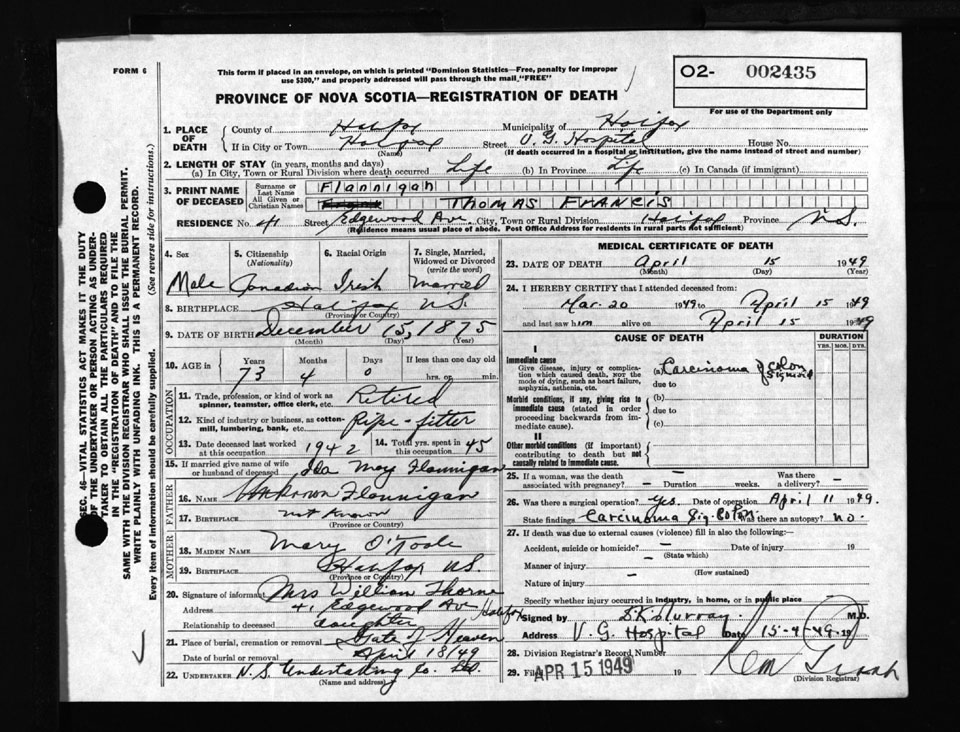 FORM 6
This form if placed in an envelope, on which is printed "Dominion Statistics—Free, penalty for improper
use $300," and properly addressed will pass through the mail, "FREE"
O2- 002435
For use of the Department only
PROVINCE OF NOVA SCOTIA—REGISTRATION OF DEATH
SEC. 46—VITAL STATISTICS ACT MAKES IT THE DUTY
OF THE UNDERTAKER OR PERSON ACTING AS UNDER-
TAKER TO OBTAIN ALL THE PARTICULARS REQUIRED
IN THE "REGISTRATION OF DEATH" AND TO FILE THE
SAME WITH THE DIVISION REGISTRAR WHO SHALL ISSUE THE BURIAL PERMIT.
WRITE PLAINLY WITH UNFADING INK. THIS IS A PERMANENT RECORD.
Every item of information should be carefully supplied. (See reverse side for instructions.)
1. PLACE OF DEATH County of Halifax Municipality of Halifax
If in City or Town Halifax Street V. G. Hospital House No.
(Name) (If death occurred in a hospital or institution, give the name instead of street and number)
2. LENGTH OF STAY (in years, months and days)
(a) In City, Town or Rural Division where death occurred Life (b) In Province Life (c) In Canada (if immigrant)
3. PRINT NAME OF DECEASED Surname or Last Name Flannigan
All Given or Christian Names THOMAS FRANCIS
RESIDENCE No. 41 Street Edgewood Ave. City, Town or Rural Division Halifax Province N.S.
(Residence means usual place of abode. Post Office Address for residents in rural parts not sufficient)
4. Sex 5. Citizenship (Nationality) 6. Racial Origin 7. Single, Married, Widowed or Divorced (write the word)
Male Canadian Irish Married
8. BIRTHPLACE Halifax N.S.
(Province or Country)
9. DATE OF BIRTH December 15, 1875
(Month) (Day) (Year)
10. AGE in Years Months Days If less than one day old
73 4 0 hrs. or min.
OCCUPATION
11. Trade, profession, or kind of work as spinner, teamster, office clerk, etc. Retired
12. Kind of industry or business, as cotten-mill, lumbering, bank, etc. Pipe-fitter
13. Date deceased last worked at this occupation 1942 14. Total yrs. spent in this occupation 45
15. If married give name of wife or husband of deceased Ida May Flannigan
FATHER
16. Name Unknown Flannigan
17. Birthplace not known
(Province or Country)
MOTHER
18. MAIDEN NAME Mary O'Toole
19. BIRTHPLACE Halifax N.S.
(Province or Country)
20. Signature of informant Mrs William Thorne
Address 41 Edgewood Ave Halifax
Relationship to deceased daughter
21. Place of burial, cremation or removal Gate of Heaven
Date of burial or removal April 18/49
22. UNDERTAKER N. S. Undertaking Co. Ltd.
(Name and address)
MEDICAL CERTIFICATE OF DEATH
23. DATE OF DEATH April 15 1949
(Month) (Day) (Year)
24. I HEREBY CERTIFY that I attended deceased from:
Mar. 20 1949 to April 15 1949
and last saw him alive on April 15 1949
CAUSE OF DEATH DURATION
YRS. MOS. DYS.
I
Immediate cause
Give disease, injury or complication which caused death, not the mode of dying, such as heart failure, asphyxia, asthenia, etc.
(a) Carcinoma of Colon Sigmoid
due to
Morbid conditions, if any, giving rise to immediate cause (stated in order proceeding backwards from immediate cause).
(b)
due to
(c)
II
Other morbid conditions (if important) contributing to death but not causally related to immediate cause.
25. If a woman, was the death associated with pregnancy? — Duration weeks. Was there a delivery? —
26. Was there a surgical operation? Yes. Date of operation April 11 1949.
State findings Carcinoma Sig. Colon Was there an autopsy? no.
27. If death was due to external causes (violence) fill in also the following:
Accident, suicide or homicide? — Date of injury 19
(State which)
Manner of injury —
(How sustained)
Nature of injury —
Specify whether injury occurred in industry, in home, or in public place
Signed by Murray M.D.
Address V. G. Hospital Date 15-4-49 19
28. Division Registrar's Record Number
29. Filed APR 15 1949 19
(Division Registrar)